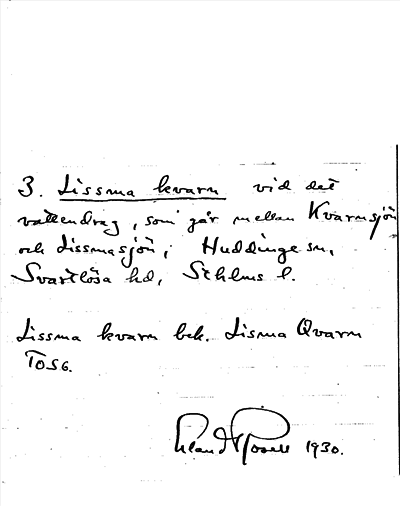 3. Lissma kvarn vid det
vattendrag, som går mellan Kvarnsjön
och Lissmasjön, Huddinge sn,
Svartlösa hd, Sthlms l.
Lissma kvarn bek. Lisma Qvarn
TOSG.
1930.